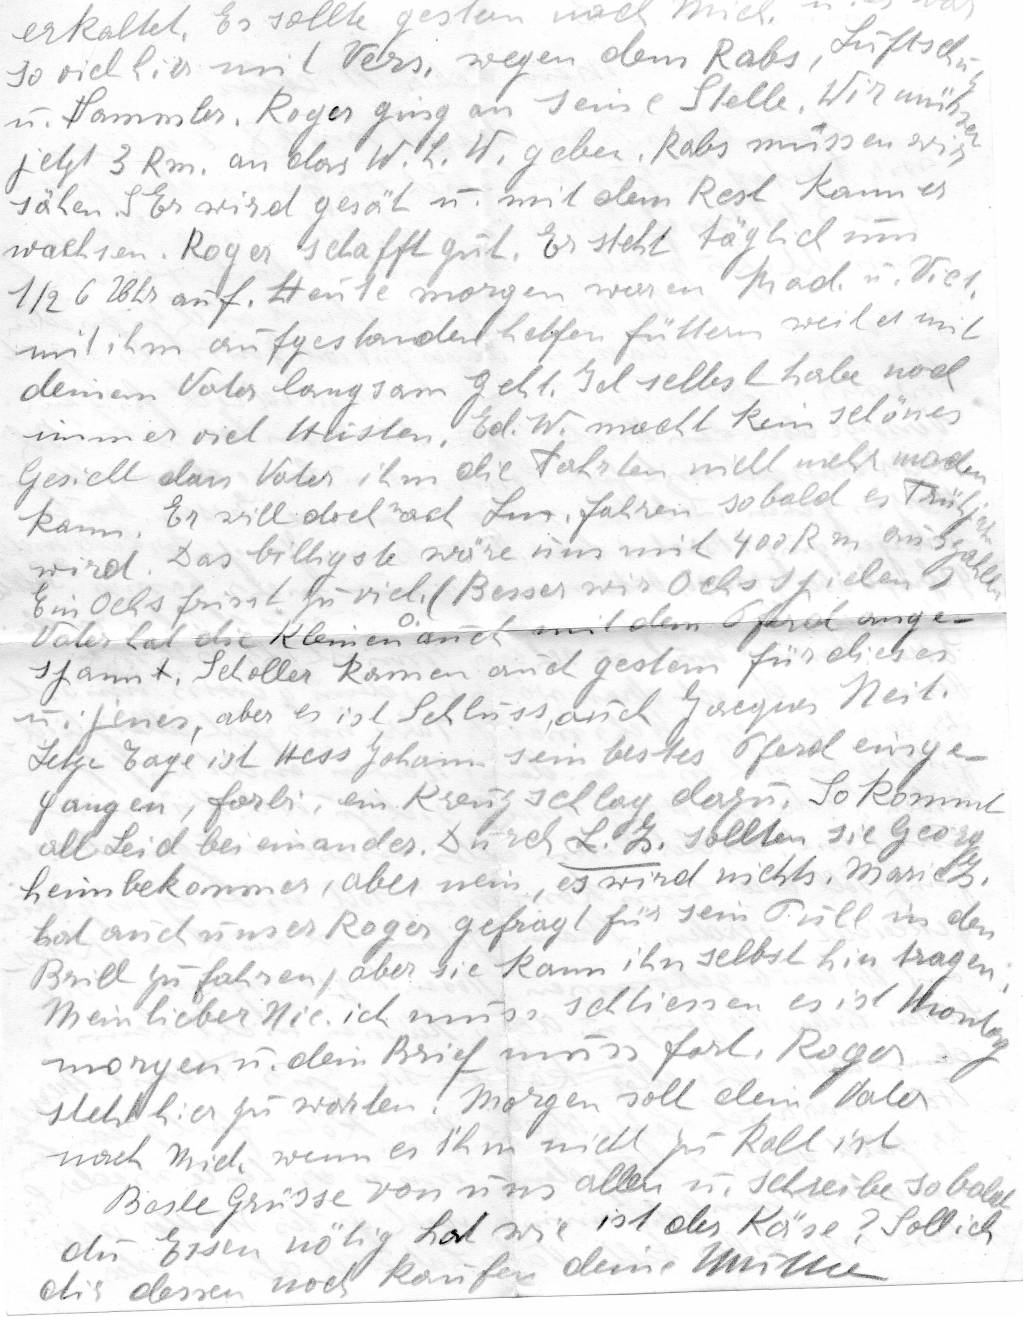 erkaltet. Es sollte gestern nach Mich. u. es war
so viel hier mit Vers. wegen dem Rabs, Luftschutz
u. Hammler. Roger ging an seine Stelle. Wir müssen
jetzt 3 Rm. an das W.L.W. geben. Rabs müssen wir
sähen. Er wird gesät u. mit dem Rest kann er
wachsen. Roger schafft gut. Er steht täglich um
1/2 6 Uhr auf. Heute morgen waren Mad. u. Vict.
mit ihm aufgestanden helfen füttern weil es mit
deinem Vater langsam geht. Ich selbst habe noch
immer viel Husten. Ed. W. macht kein schönes
Gesicht dass Vater ihm die Fahrten nicht mehr machen
kann. Er will doch nach Lux. fahren sobald es Frühjahr
wird. Das billigste wäre uns mit 400 Rm auszahlen
Ein Ochs frisst zu viel. (Besser wir Ochs spielen)
Vater hat die Kleinen auch mit dem Pferd ange-
spannt. Scholler kamen auch gestern für dieses
u. jenes, aber es ist Schluss, auch Jacques Neit.
Letze Tage ist Hess Johann sein bestes Pferd einge-
gangen, farbi, ein Kreuzschlag dazu. So kommt
all Leid beieinander. Durch L. Z. sollten sie Georg
heimbekommen, aber nein, es wird nichts. Marie Z.
hat auch unser Roger gefragt für sein Püll in den
Brill zu fahren, aber sie kann ihn selbst hin tragen.
Mein lieber Nic. ich muss schliessen es ist Montag
morgen u. dein Brief muss fort. Roger
steht hier zu warten. Morgen soll dein Vater
nach Mich. wenn es ihm nicht zu kalt ist
Beste Grüsse von uns allen u. schreibe sobald
du Essen nötig hat wie ist der Käse? Soll ich
dir dessen noch kaufen deine Mutter